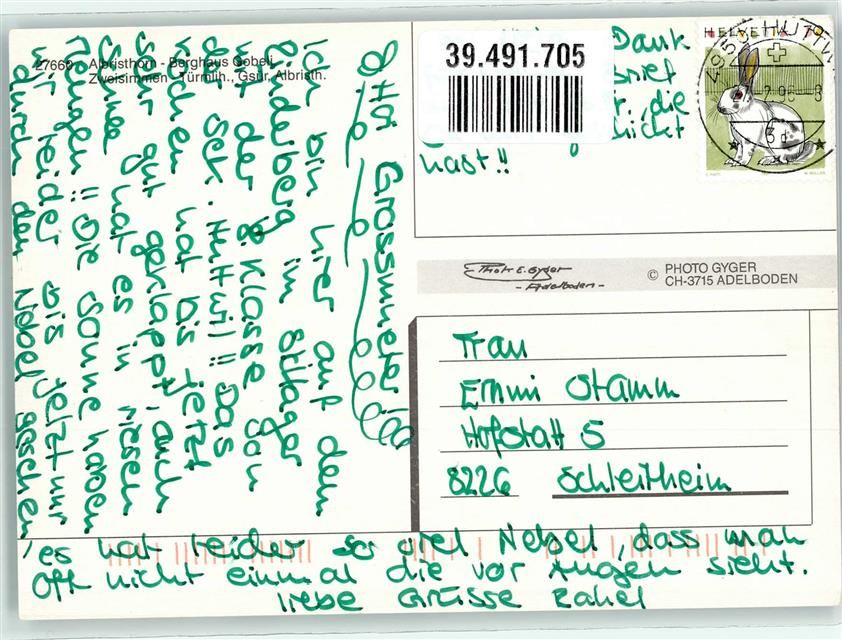 Hoi Grossmueti!
Ich bin hier auf dem
Rinderberg im Skilager
mit der 8. Klasse (an
der Sek. Huttwil)!! Das
kochen hat bis jetzt
sehr gut geklappt, auch
hat es in riesen
Mengen!! Die Sonne haben
wir leider bis jetzt nur
durch den Nebel gesehen,
es hat leider so viel Nebel, dass man
oft nicht einmal die vor Augen sieht.
liebe Grüsse Rahel
27660 Albristhorn - Berghaus Gobeli
Zweisimmen - Türmlih., Gsür, Albristh.
39.491.705
Dank
Brief
die
nicht
hast!!
HELVETIA 70
PHOTO GYGER
CH-3715 ADELBODEN
Photo E. Gyger
- Adelboden -
Frau
Emmi Stamm
Hofstatt 5
8226 Schleitheim